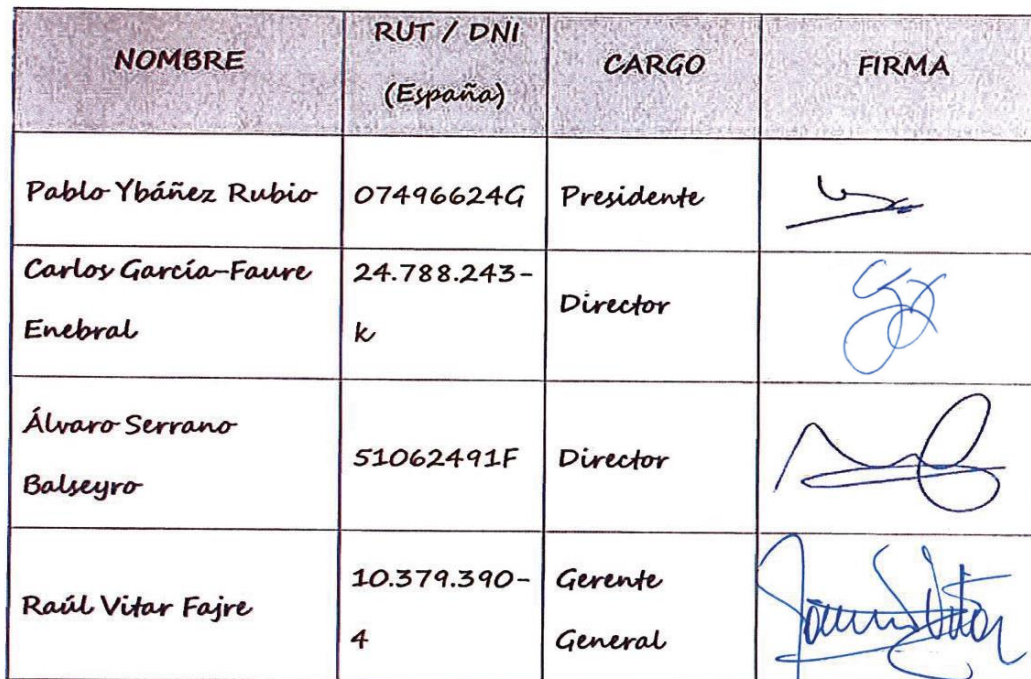 NOMBRE
RUT / DNI
(España)
CARGO
FIRMA
Pablo Ybáñez Rubio
07496624G
Presidente
Carlos García-Faure
Enebral
24.788.243-
k
Director
Álvaro Serrano
Balseyro
51062491F
Director
Raúl Vitar Fajre
10.379.390-
4
Gerente
General